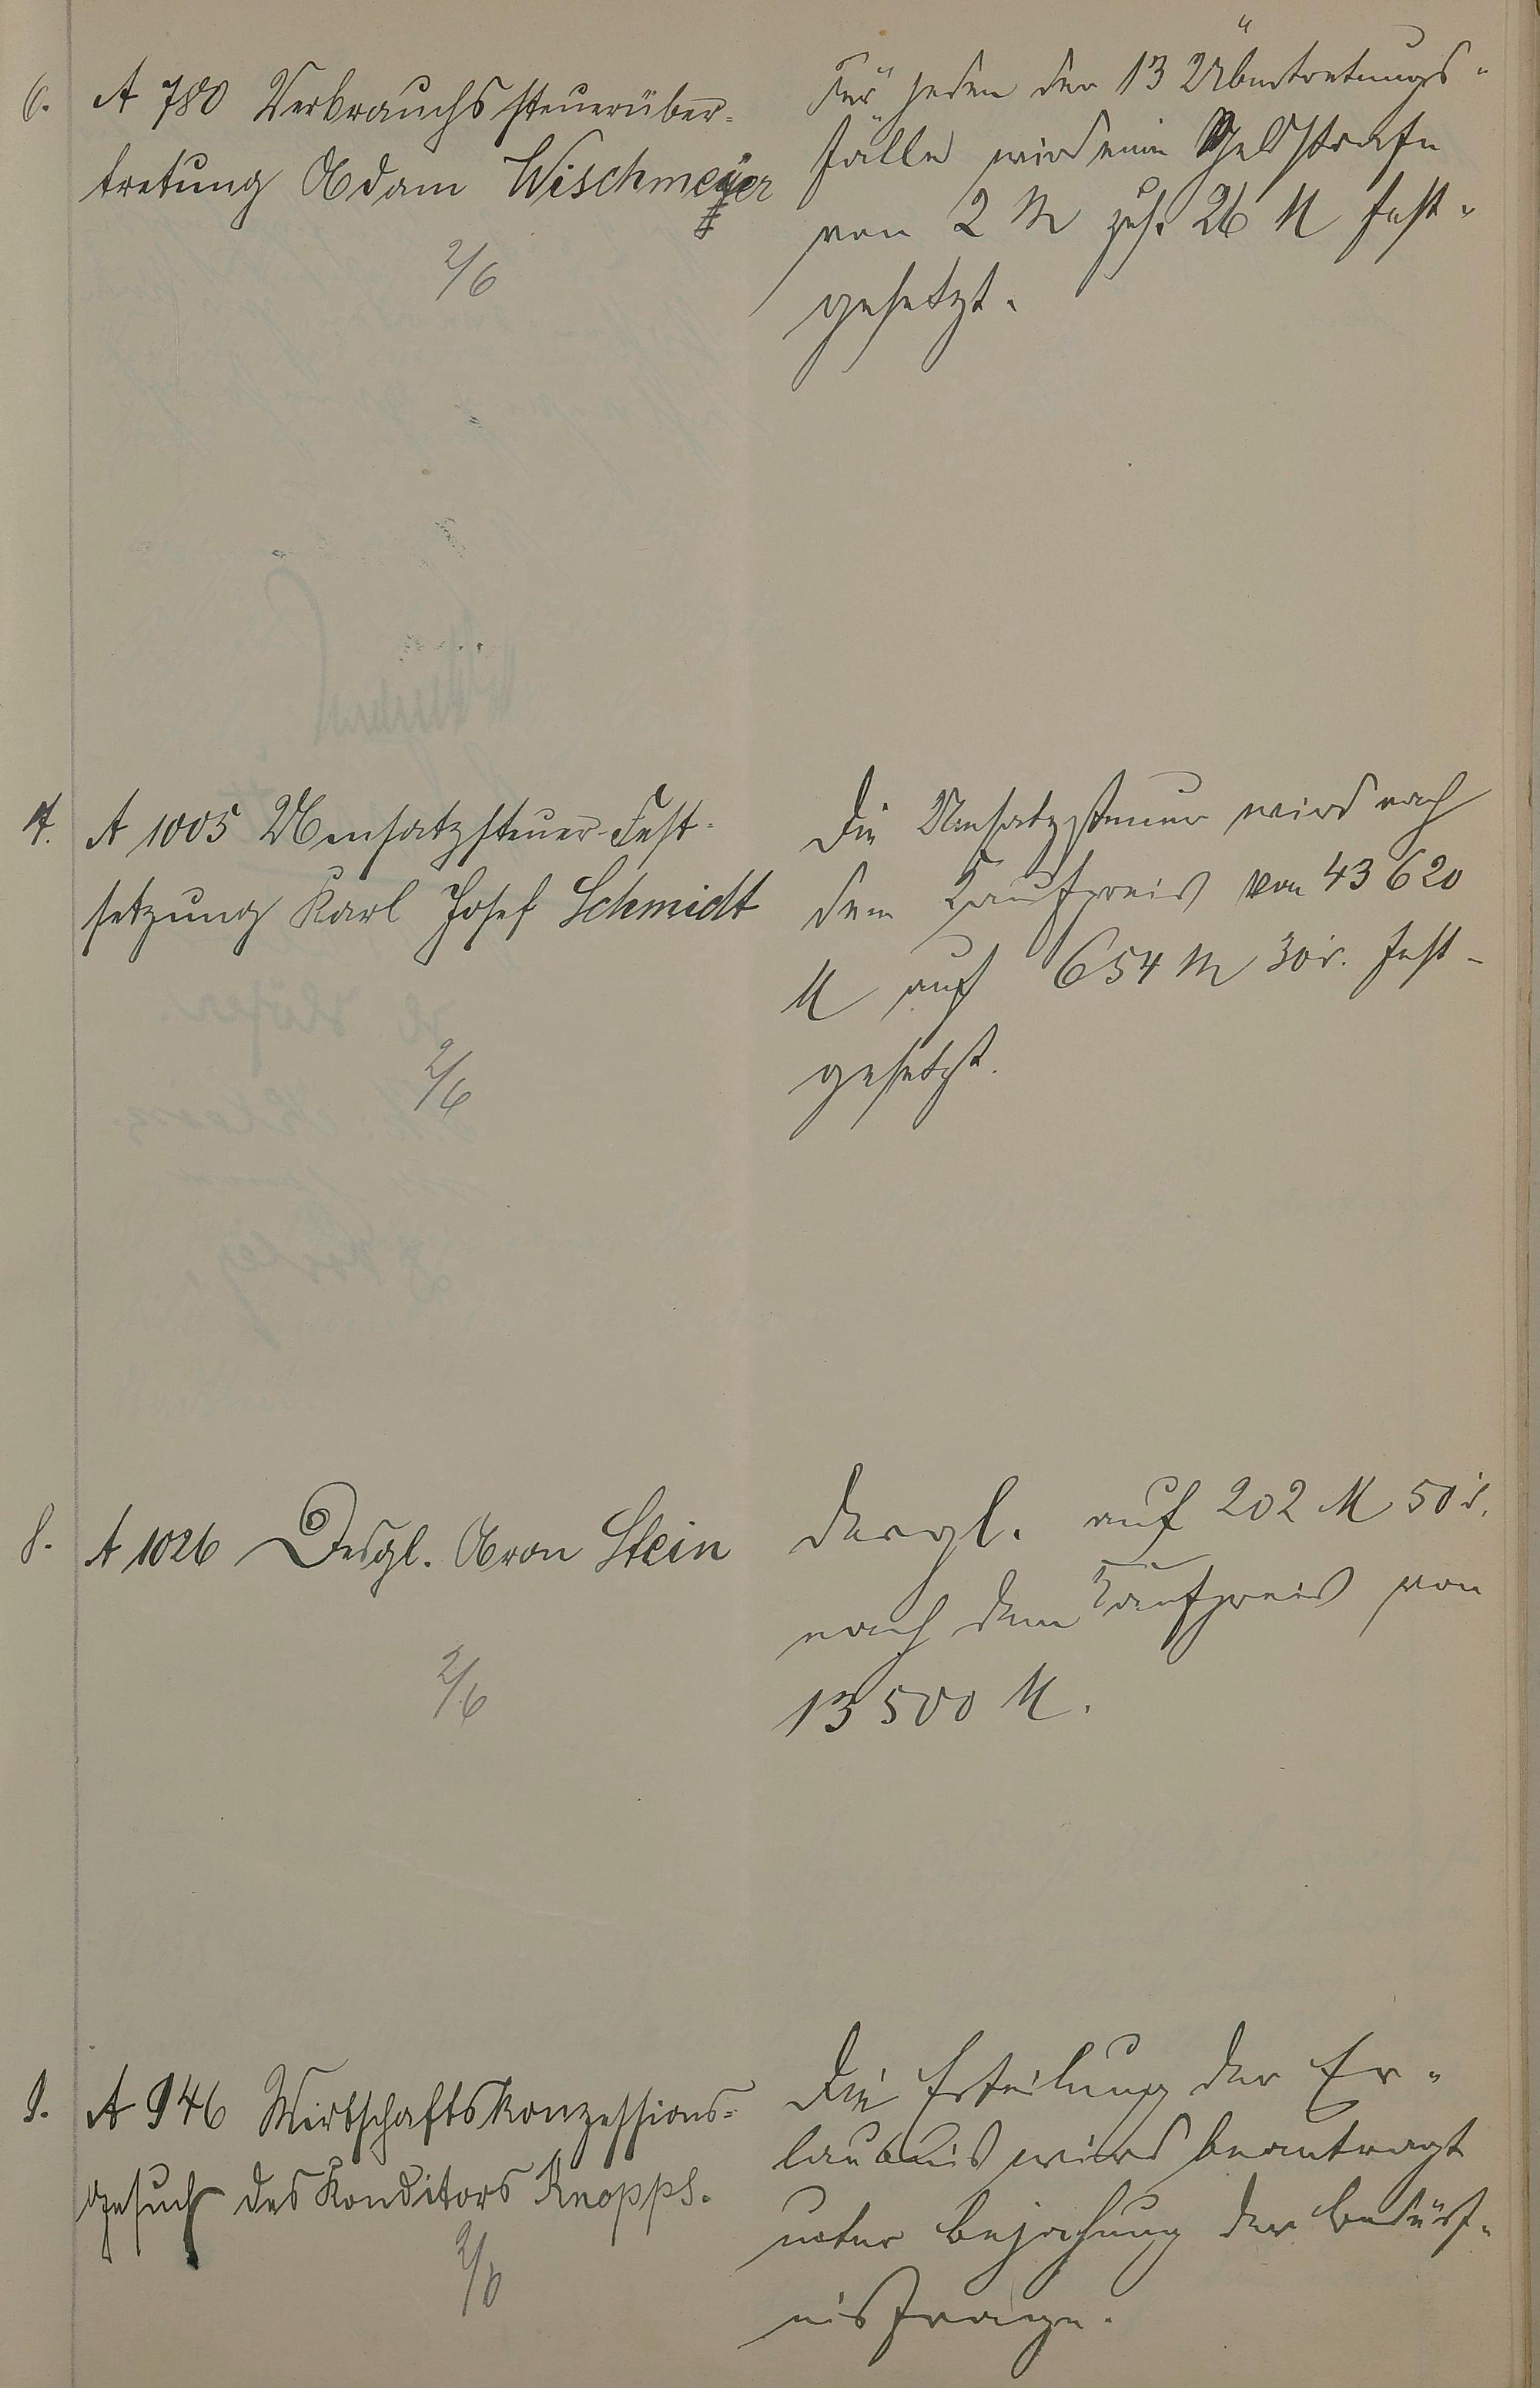 6. A 780 Verbrauchssteuerüber-
tretung Adam Wischmeyer
2/6
Für jeden der 13 Übertretungs-
fälle wird eine Geldstrafe
von 2 M zus. 26 M fest-
gesetzt.
7. A 1005 Umsatzsteuer-Fest-
setzung Karl Josef Schmidt
2/6
Die Umsatzsteuer wird nach
dem Kaufpreis von 43620
M auf 654 M 30 d. fest-
gesetzt.
8. A 1026 Desgl. Aron Stein
2/6
desgl. auf 202 M 50 d.
nach dem Kaufpreis von
13500 M.
9. A 946 Wirtschaftskonzessions-
gesuch des Konditors Knopps.
2/6
Die Erteilung der Er-
laubnis wird beantragt
unter Bejahung der Bedürf-
nisfrage.